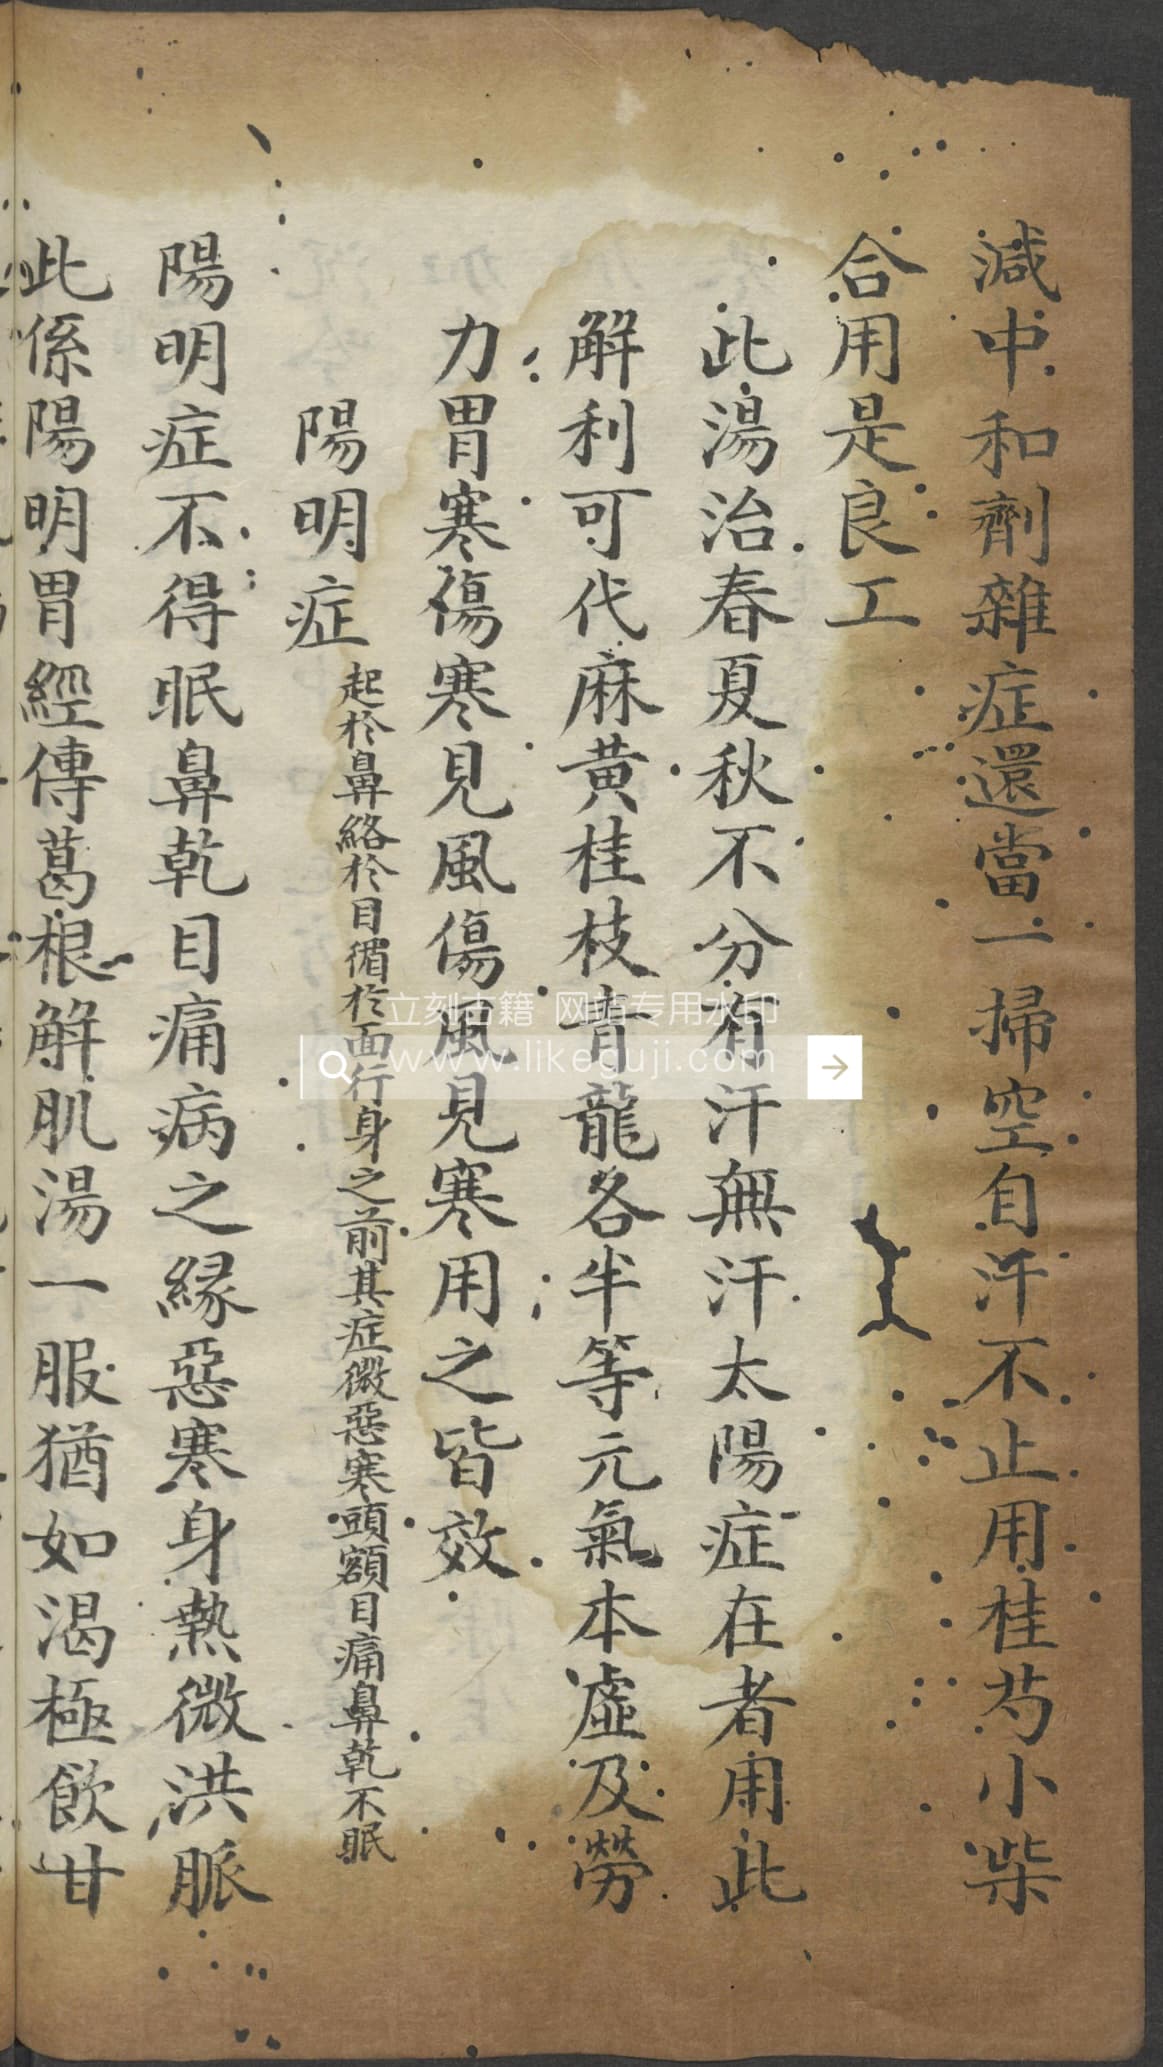 減中和劑雜症還當一掃空自汗不止用桂芍小柴
合用是良工
此湯治春夏秋不分有汗無汗太陽症在者用此
解利可代麻黄桂枝青龍各半等元氣本虛及勞
力胃寒傷寒見風傷風見寒用之皆效
陽明症 起於鼻絡於目循於面行身之前其症微惡寒頭額目痛鼻乾不眠
陽明症不得眠鼻乾目痛病之緣惡寒身熱微洪脈
此係陽明胃經傳葛根解肌湯一服猶如渴極飲甘
立刻古籍 网站专用水印
www.likeguji.com